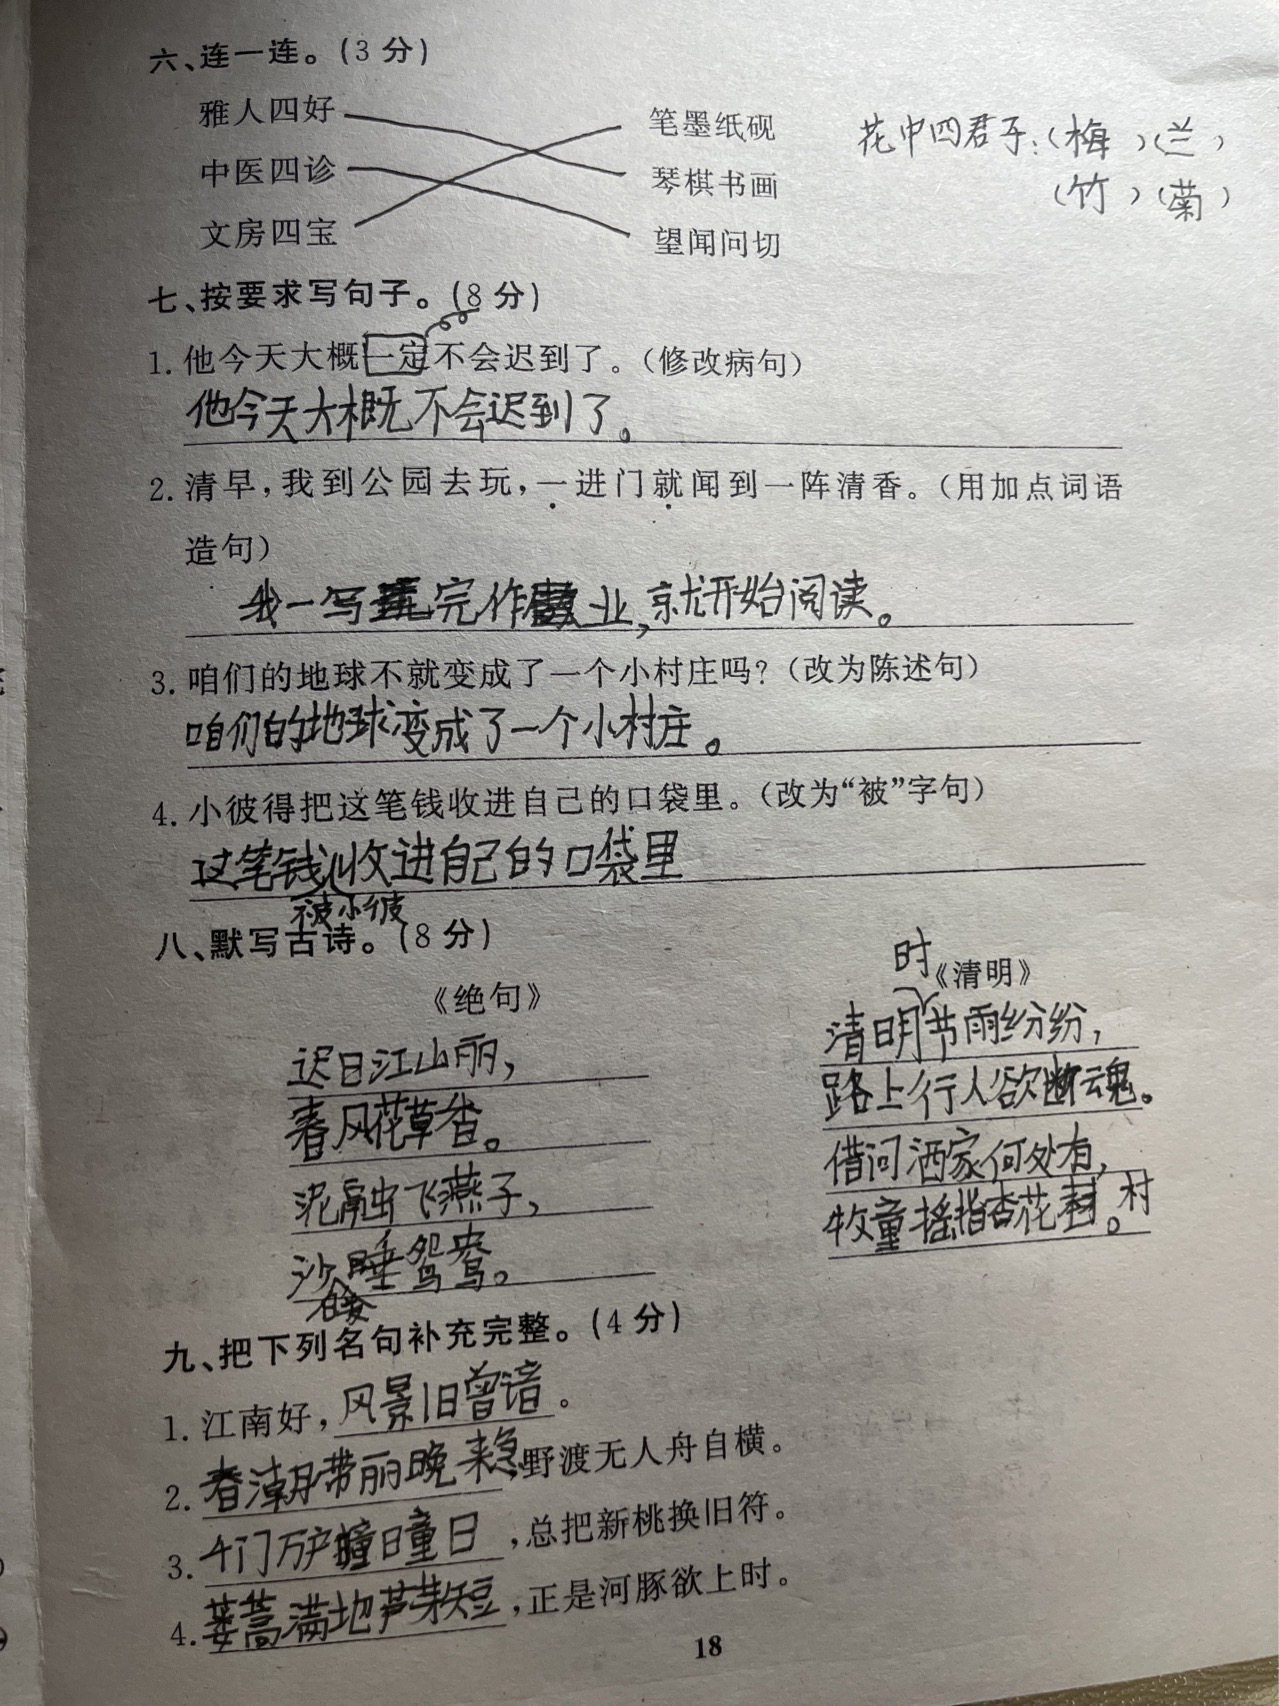 六、连一连。(3分)
雅人四好 笔墨纸砚
中医四诊 琴棋书画
文房四宝 望闻问切
花中四君子:(梅)(兰)
(竹)(菊)
七、按要求写句子。(8分)
1. 他今天大概一定不会迟到了。(修改病句)
他今天大概不会迟到了。
2. 清早,我到公园去玩,一进门就闻到一阵清香。(用加点词语
造句)
我一写完作业,就开始阅读。
3. 咱们的地球不就变成了一个小村庄吗?(改为陈述句)
咱们的地球变成了一个小村庄。
4. 小彼得把这笔钱收进自己的口袋里。(改为“被”字句)
这笔钱收进自己的口袋里
被小彼
八、默写古诗。(8分)
《绝句》
迟日江山丽,
春风花草香。
泥融飞燕子,
沙睡鸳鸯。
暖
《清明》
时
清明节雨纷纷,
路上行人欲断魂。
借问酒家何处有,
牧童摇指杏花村。村
九、把下列名句补充完整。(4分)
1. 江南好,风景旧曾谙。
2. 春潮带雨晚来急,野渡无人舟自横。
3. 千门万户曈曈日,总把新桃换旧符。
4. 蒌蒿满地芦芽短,正是河豚欲上时。
18